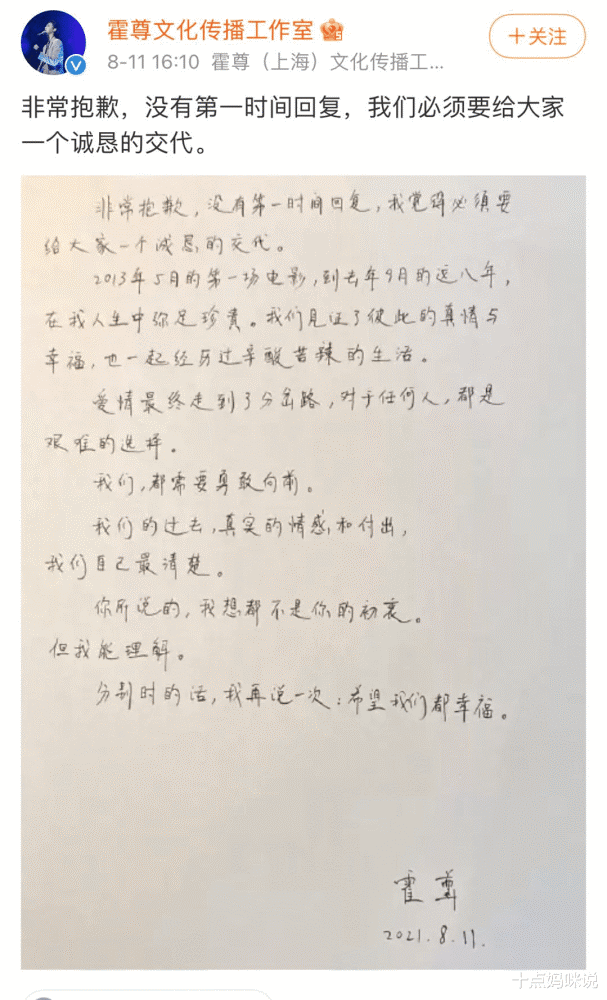 霍尊文化传播工作室
+关注
8-11 16:10 霍尊（上海）文化传播工...
非常抱歉，没有第一时间回复，我们必须要给大家
一个诚恳的交代。
非常抱歉，没有第一时间回复，我觉得必须要
给大家一个诚恳的交代。
2013年5月的第一场电影，到去年9月的这八年，
在我人生中弥足珍贵。我们见证了彼此的真情与
幸福，也一起经历过辛酸苦辣的生活。
爱情最终走到了分岔路，对于任何人，都是
艰难的选择。
我们，都需要勇敢向前。
我们的过去，真实的情感和付出，
我们自己最清楚。
你所说的，我想都不是你的初衷。
但我能理解。
分别时的话，我再说一次：希望我们都幸福。
霍尊
2021.8.11.
十点妈咪说